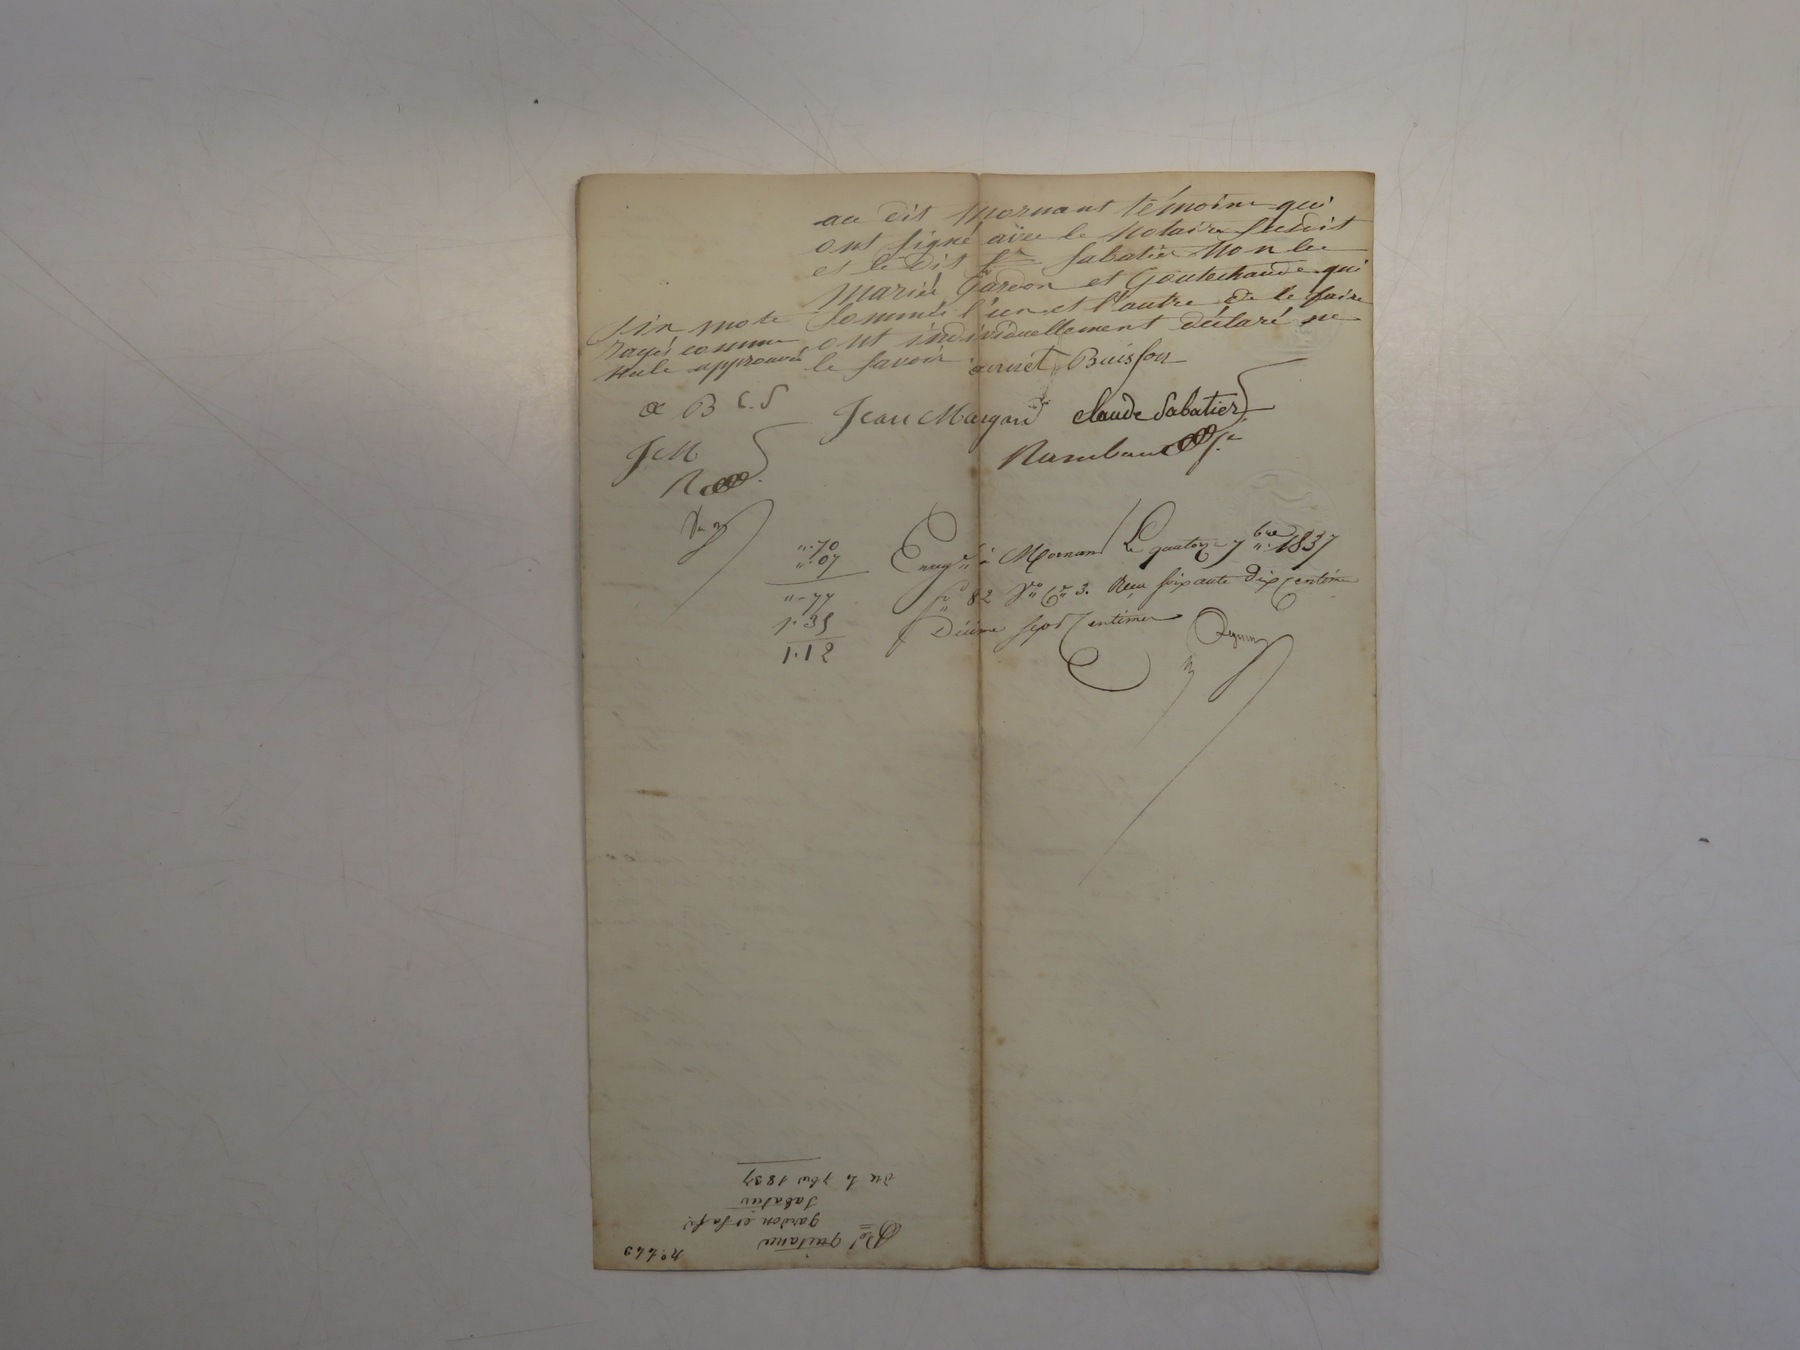 au dit Mornant témoins qui
ont signé avec le Notaire susdit
et le dit Sr Sabatier Non les
Mariés Gardon et Goutechaude qui
Sommés l'un et l'autre de le faire
ont individuellement déclaré ne
le savoir
Six mots
rayés comme
nuls approuvés
Buisson
B C.S
Jean Margand claude Sabatier
J M
Rambaud
R
".70
".07
"-77
1.35
1.12
Enregé à Mornant Le quatorze 7bre 1837
fo 82 Vo Ce 3. Reçu soixante dix Centimes
Décime sept Centimes
No 449
Quitance
gardon et sa fe
Sabatier
du 2 7bre 1837